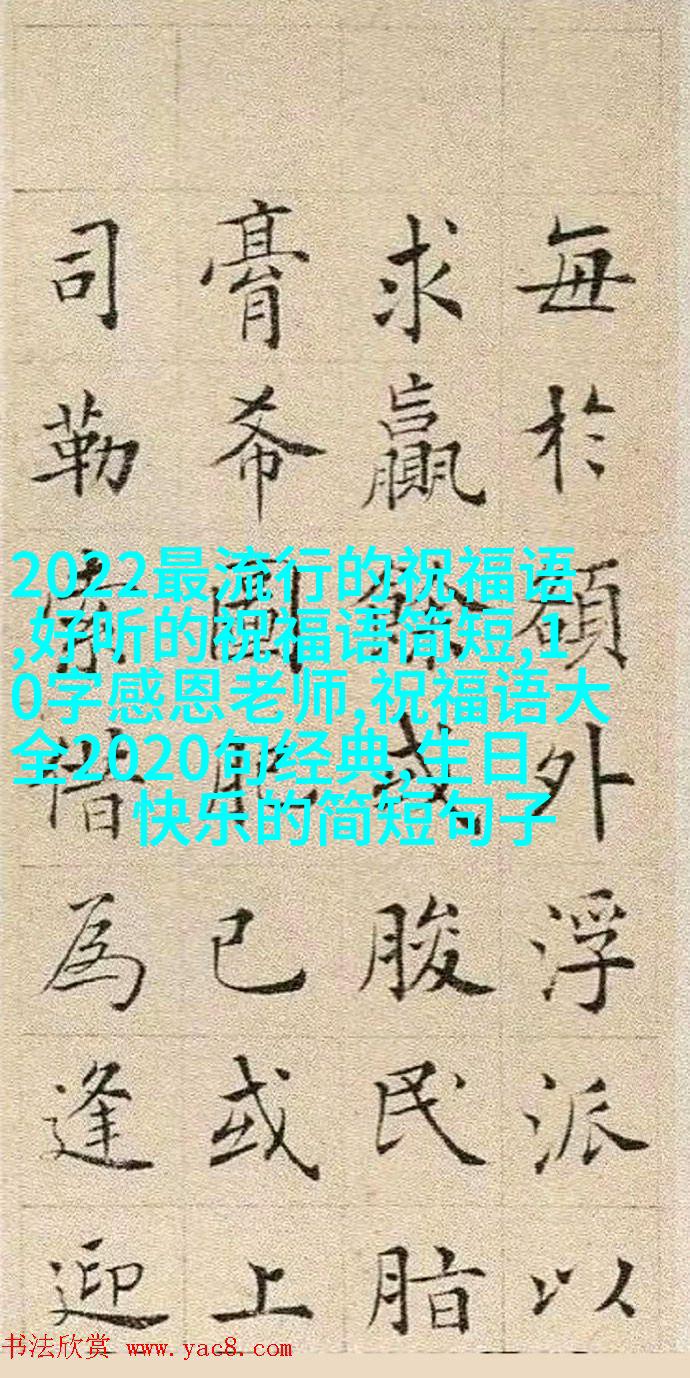 每於額外浮派以
求贏餘或朘民脂
膏希圖肥已或上
司勒索借為逢迎
2022最流行的祝福语
,好听的祝福语简短,1
0字感恩老师,祝福语大
全2020句经典,生日
快乐的简短句子
书法欣赏 www.yac8.com